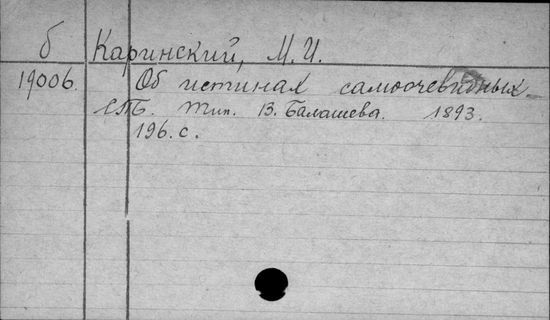 б Каринский, М. И.
19006. Об истинах самоочевидных.
СПБ. Тип. В. Балашева. 1893.
196. с.